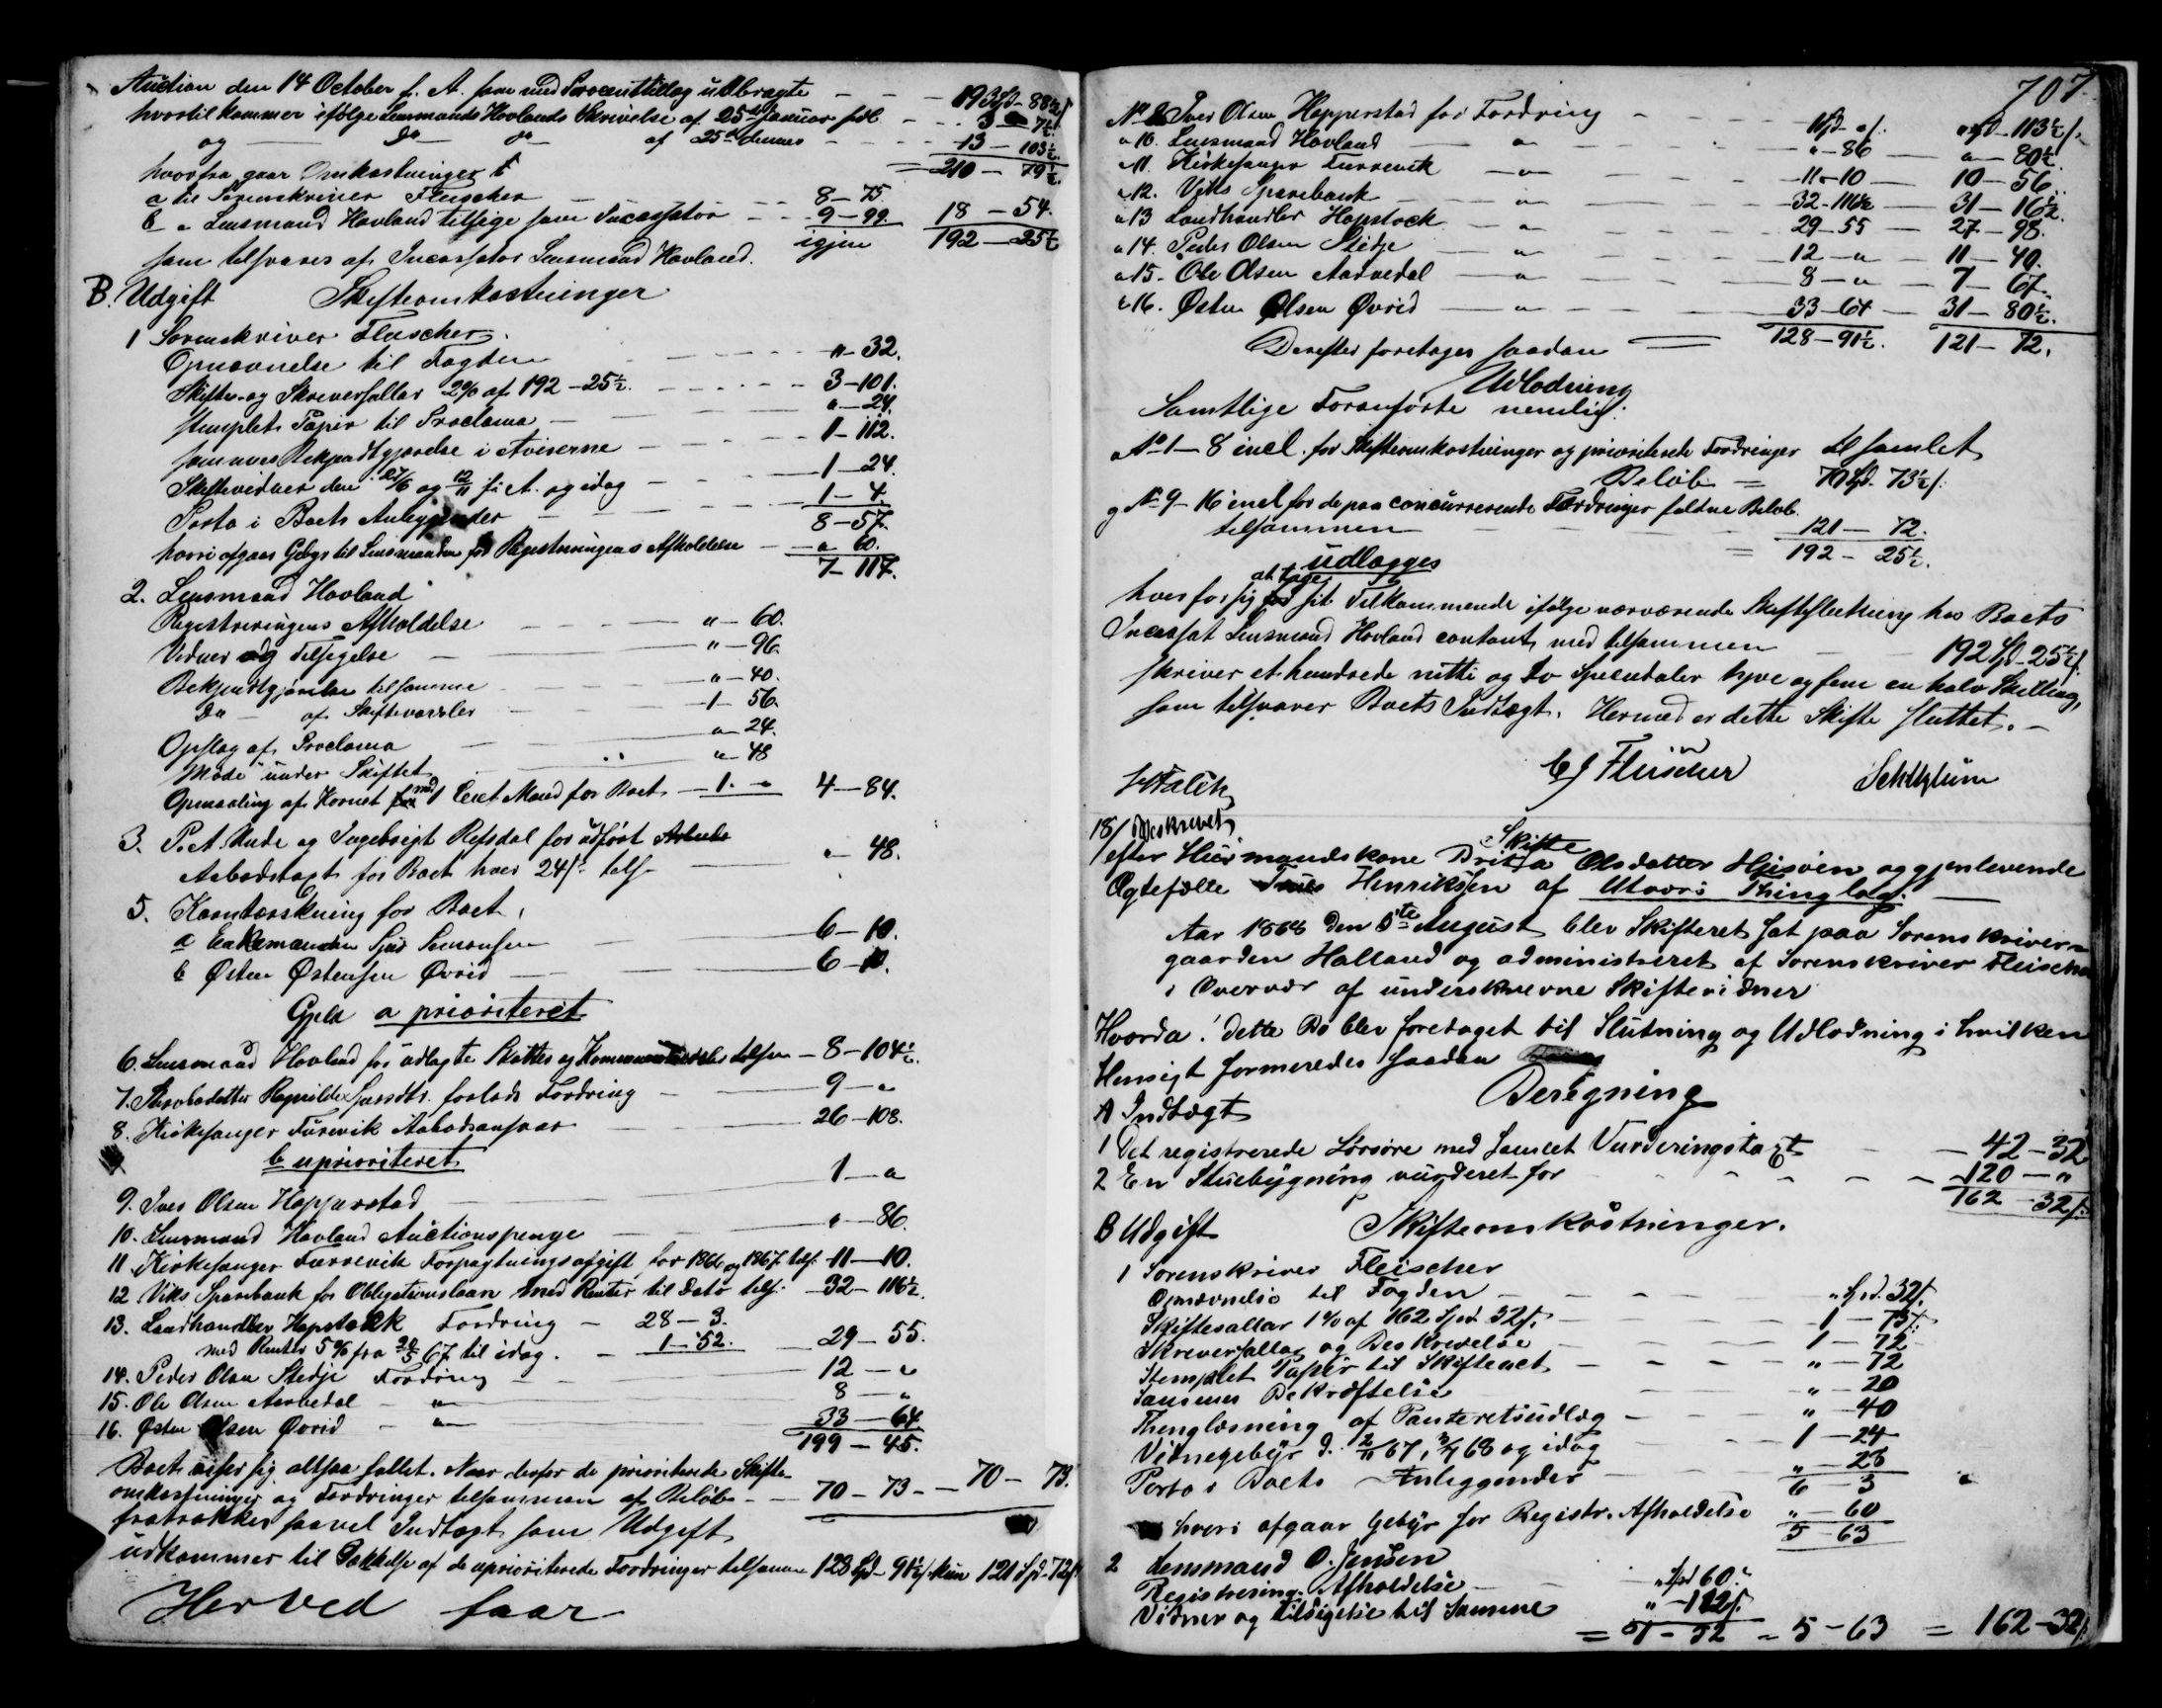 Auction den 14 October f. A. som med Procenttillæg udbragte - - - 193 Spd - 88½ /
hvortil kommer ifølge Lensmands Hovlands Skrivelse af 25de Januar - - 3 - 7½.
og - Do - do - af 25de dennes - - - 13 - 103½.
= 210 - 79½.
hvorfra gaar Omkostninger
a til Sorenskriver Fleischer - 8 - 75.
b " Lensmand Hovland tillige som Incassator - - 9 - 99. 18 - 54.
som tilsvares af Incassator Lensmand Hovland. igjen 192 - 25½
B. Udgift Skifteomkostninger
1 Sorenskriver Fleischer.
Opnævnelse til Fogden - - - - " - 32.
Skifte- og Skriversallar 2% af 192 - 25½. - - - - 3 - 101.
stemplet Papir til Proclama - " - 24.
sammes Bekjendtgjørelse i Aviserne - - - - 1 - 112.
Skiftevidner den 27/6 og 12/11 f. A. og idag - - - 1 - 24.
Porto i Boets Anliggender - - - 1 - 4.
8 - 57.
hvori afgaar Gebyr til Lensmanden for Registreringens Afholdelse - " 60.
7 - 117.
2. Lensmand Hovland
Registreringens Afholdelse - - - " - 60.
Vidner og Tilsigelse - " - 96.
Bekjendtgjørelse til samme - - - " - 40.
Do - af Skiftevarsler - - - 1 - 56.
Opslag af Proclama - " - 24.
Møde under Skiftet - " - 48
Opmaaling af Kornet med 1 leiet Mand for Boet - 1. - " 4 - 84.
3. P. A. Unde og Ingebrigt Refsdal for udført
Aabodstaxt for Boet hver 24 / tils - " - 48.
5. Korntærskning for Boet,
a Enkemanden Sjur Simonsen - 6 - 10.
b Østen Østensen Øvrid - 6 - 10.
Gjeld a prioriteret
6. Lensmand Hovland for udlagte Skatter og tilsam - 8 - 104½.
7. Ragnilde Fordring - 9 - "
8. Kirkesanger Turvevik Aabodsansvar - 26 - 108.
b uprioriteret
9. Iver Olsen Hopperstad - 1 - "
10. Lensmand Hovland Auctionspenge - " - 86.
11. Kirkesanger Turrevik Forpagtningsafgift for 1866 og 1867 tils. - 11 - 10.
12 Viks Sparebank for Obligationslaan med Renter til Dato tils. - 32 - 116½.
13. Landhandler Hopstock Fordring - 28 - 3.
med Renter 5% fra 20/5 67 til idag. - 1 - 52. - 29 - 55.
14. Peder Olsen Stedje Fordring - - - 12 - "
15. Ole Olsen Aarbedal - " - 8 - "
16. Østen Olsen Øvrid - " - 33 - 64.
199 - 45.
Boet viser sig altsaa fallit. Naar derfor de prioriterede Skifte-
omkostninger og Fordringer tilsammen af Beløb - - 70 - 73 - - 70 - 73.
fratrækkes saavel Indtægt som Udgift
udkommer til Dækkelse af de uprioriterede Fordringer tilsammen 128 Spd - 91½ / kun 121 Spd - 72 /
Herved faar
707
No 9 Iver Olsen Hopperstad for Fordring - - - 1 Spd - " /. " Spd - 113½ /.
" 10. Lensmand Hovland - " - " - 86 - " - 80½.
" 11. Kirkesanger Turrevik - " - 11 - 10 - 10 - 56.
" 12. Viks Sparebank - " - 32 - 116½ - 31 - 16½.
" 13 Landhandler Hopstock - " - 29 - 55 - 27 - 98.
" 14. Peder Olsen Stedje - " - 12 - " - 11 - 40.
" 15. Ole Olsen Aarbedal - " - 8 - " - 7 - 67.
" 16. Østen Olsen Øvrid - " - 33 - 64 - 31 - 80½.
Derefter foretages saadan = 128 - 91½. 121 - 72.
Udlodning
Samtlige Foranførte nemlig:
a No 1 - 8 incl. for Skifteomkostninger og prioriterede Fordringer til samlet
Beløb = 70 Spd. 73½ /.
og No 9 - 16 incl. for de paa concurrerende Fordringer faldne Beløb
tilsammen - 121 - 72.
= 192 - 25½.
udlægges
hver for sig at tage sit Tilkommende ifølge nærværende Skifteslutning hos Boets
Incassat Lensmand Hovland contant med tilsammen - 192 Spd - 25½ /
skriver et hundrede nitti og to Speciedaler tyve og fem en halv Skilling,
som tilsvarer Boets Indtægt. Hermed er dette Skifte sluttet. -
Fleischer
18/ Beskrevet
Skifte
efter Huusmandskone Britha Olsdatter og gjenlevende
Ægtefælle Henriksen af Utvær Thinglag.
Aar 1868 den 5te August blev Skifteret sat paa Sorenskriver-
gaarden Halland og administreret af Sorenskriver Fleischer
i Overvær af underskrevne Skiftevidner
Hvorda: dette Bo blev foretaget til Slutning og Udlodning i hvilken
Hensigt formeredes saadan
Beregning
A Indtægt
1 Det registrerede Løsøre med samlet Vurderingstaxt - 42 - 32
2 En Stuebygning vurderet for - - - - 120 - "
162 - 32 /.
B Udgift Skifteomkostninger.
1 Sorenskriver Fleischer
Opnævnelse til Fogden - - - - " Spd. 32 /.
Skiftesallar 1% af 162 Spd 32 /. - - - 1 - 75 /.
Skriversallar og Beskrivelse - 1 - 72
Stemplet Papir til Skifteact - - - " - 72
Sammes Bekræftelse - " - 20
Thinglæsning af Panteretsudlæg - - - " - 40
Vidnegebyr d. 2/11 67, 3/7 68 og idag - - 1 - 24
Porto i Boets Anliggender - " - 28
6 - 3
hvori afgaar Gebyr for Registr. Afholdelse " - 60
5 - 63
2 Lensmand O. Jensen
Registrering. Afholdelse - " Spd 60.
Vidner og Tilsigelse til Samme " - 112 /.
= 1 - 52 = 5 - 63 = 162 - 32 /.